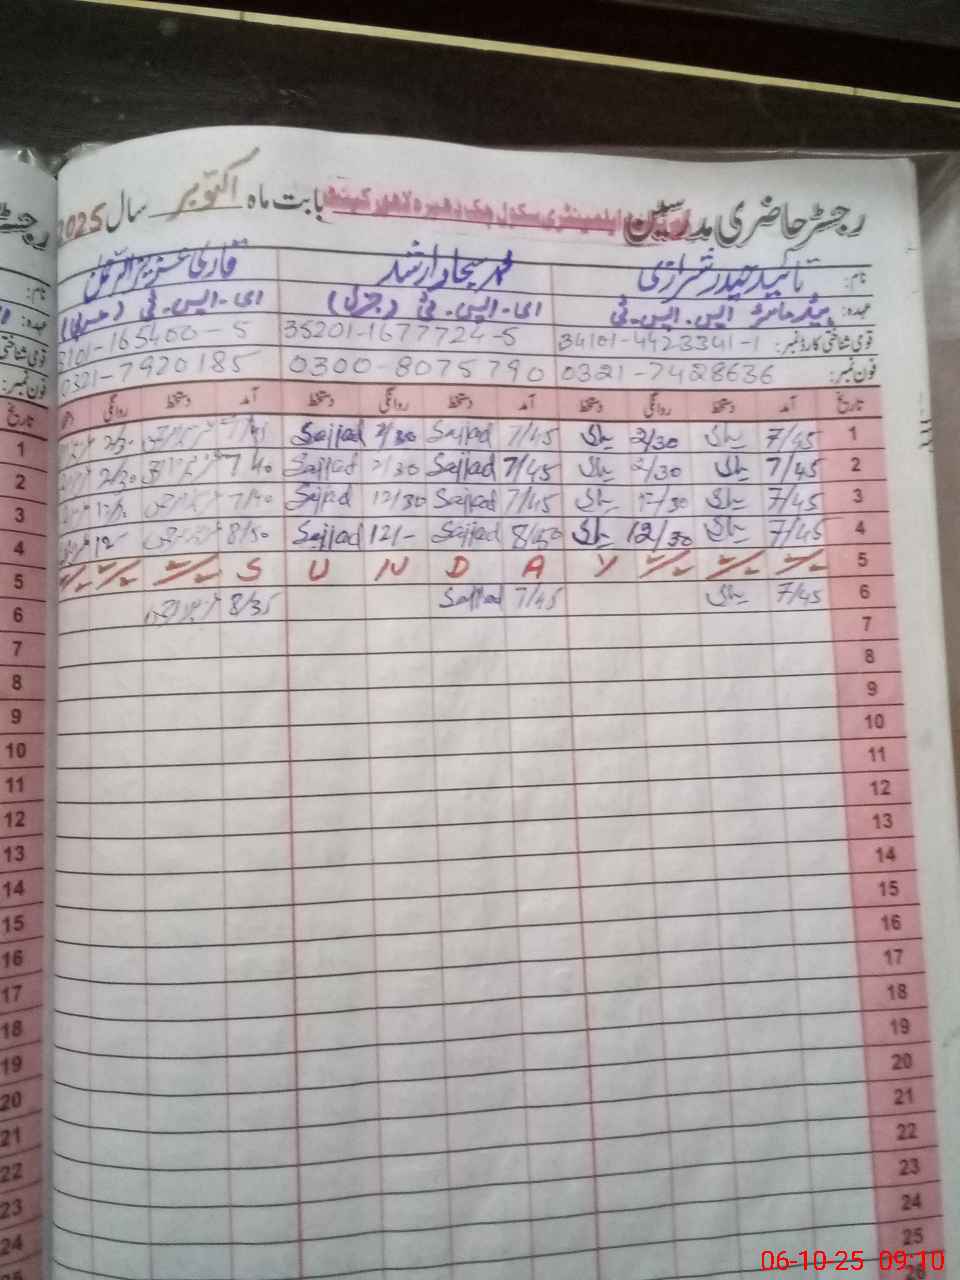 رجسٹر حاضری مدرسین ایلیمینٹری سکول چک دھیرہ لاہور کینٹ بابت ماہ اکتوبر سال 2025
نام: تائید حیدر شیرازی محمد سجاد ارشد قاری عزیز الرحمٰن
عہدہ: ہیڈ ماسٹر ایس۔ ایس۔ ٹی ای۔ ایس۔ ٹی (جنرل) ای۔ ایس۔ ٹی (عربی)
قومی شناختی کارڈ نمبر: 34101-4423341-1 35201-1677724-5 101-165400-5
فون نمبر: 0321-7428636 0300-8075790 0321-7920185
تاریخ آمد دستخط روانگی دستخط آمد دستخط روانگی دستخط آمد دستخط روانگی
1 7/45 2/30 7/45 Sajjad 2/30 Sajjad 7/45 2/30
2 7/45 2/30 7/45 Sajjad 2/30 Sajjad 7/40 2/30
3 7/45 12/30 7/45 Sajjad 12/30 Sajjad 7/40
4 7/45 12/30 8/50 Sajjad 12/- Sajjad 8/50 12-
5 S U N D A Y
6 7/45 7/45 Sajjad 8/35
7
8
9
10
11
12
13
14
15
16
17
18
19
20
21
22
23
24
25
26
رجسٹر
نام:
عہدہ:
قومی شناختی
فون نمبر:
تاریخ
1
2
3
4
5
6
7
8
9
10
11
12
13
14
15
16
17
18
19
20
21
22
23
24
25
06-10-25 09:10